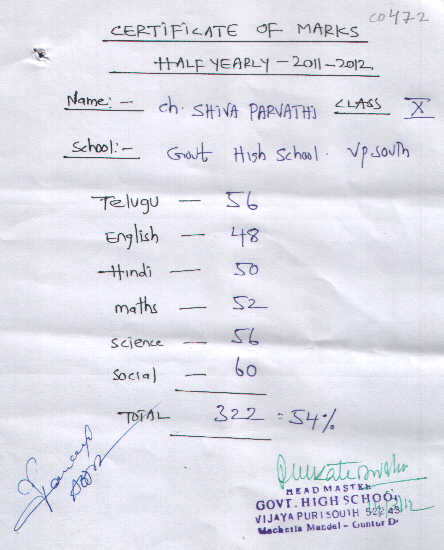 CO472
CERTIFICATE OF MARKS
HALF YEARLY - 2011-2012
Name: - ch. SHIVA PARVATHI CLASS X
School:- Govt High School. V.P.South
Telugu - 56
English - 48
Hindi - 50
maths - 52
science - 56
social - 60
TOTAL 322 = 54%
HEAD MASTER
GOVT. HIGH SCHOOL
VIJAYA PURI SOUTH
Macherla Mandal - Guntur D